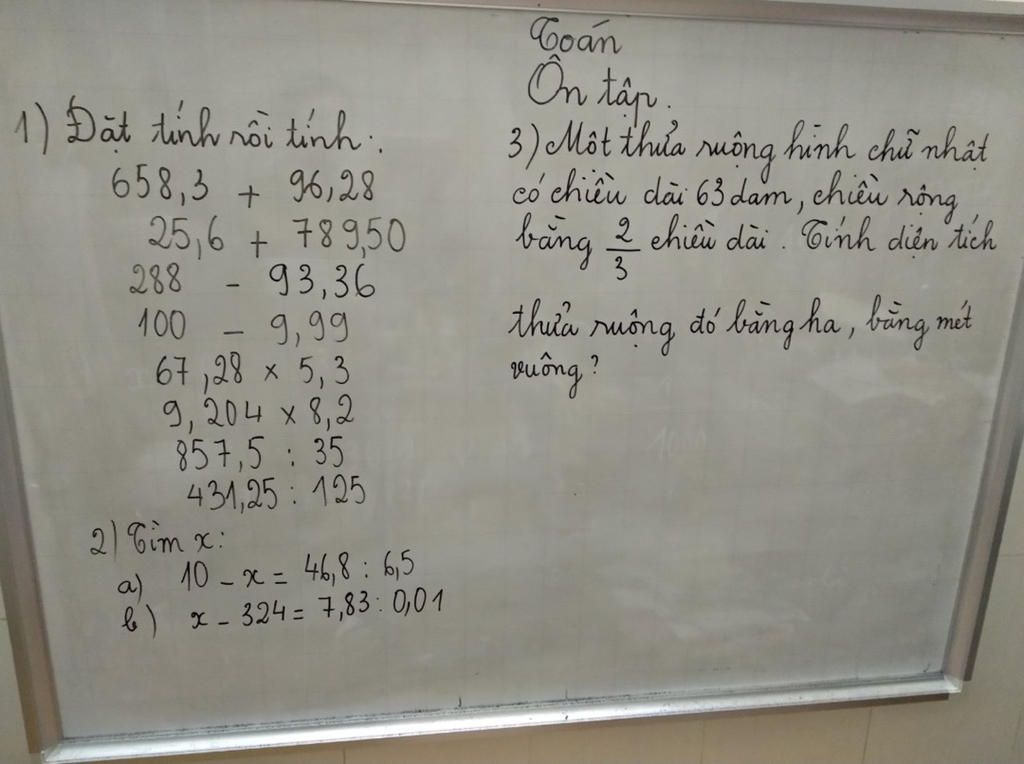 Toán
Ôn tập.
1) Đặt tính rồi tính.
658,3 + 96,28
25,6 + 789,50
288 - 93,36
100 - 9,99
67,28 × 5,3
9,204 × 8,2
857,5 : 35
431,25 : 125
2) Tìm x:
a) 10 - x = 46,8 : 6,5
b) x - 324 = 7,83 : 0,01
3) Một thửa ruộng hình chữ nhật
có chiều dài 63 dam, chiều rộng
bằng 2/3 chiều dài. Tính diện tích
thửa ruộng đó bằng ha, bằng mét
vuông?